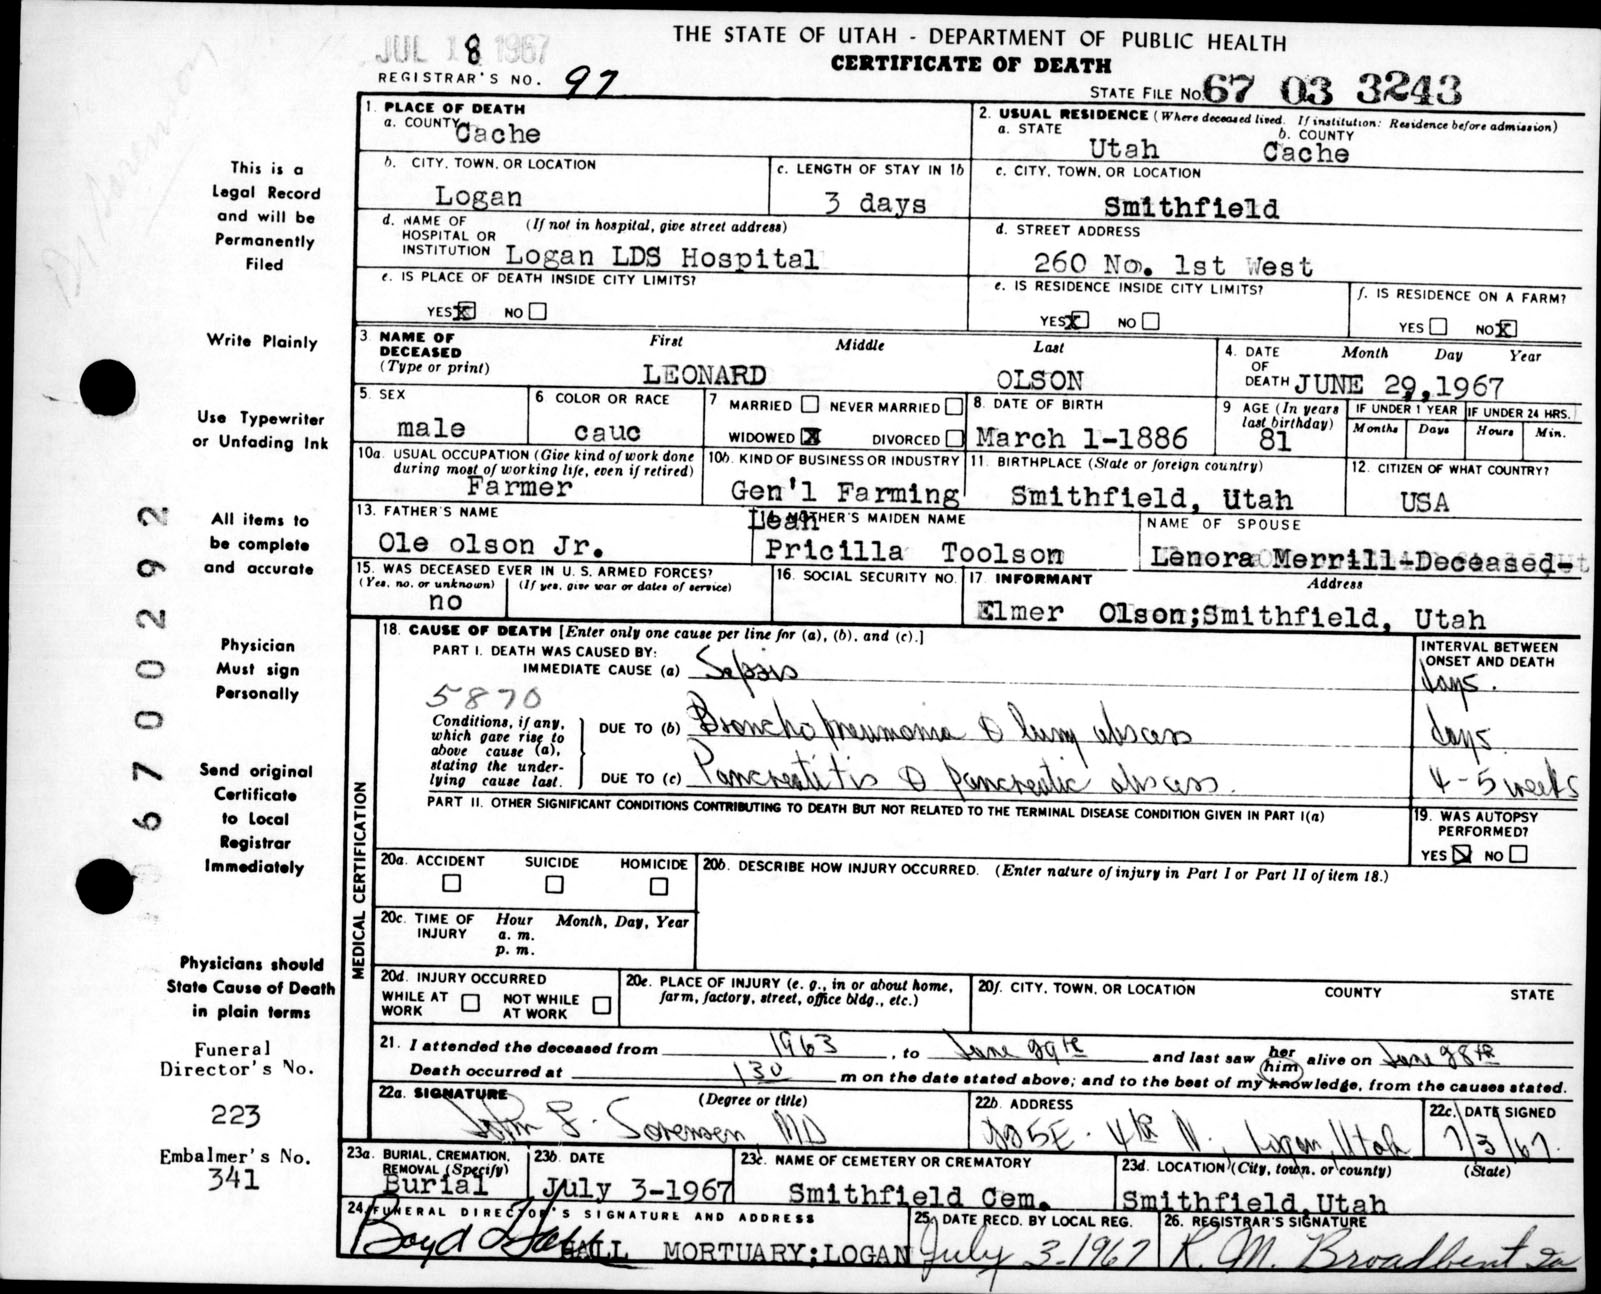 JUL 18 1967
THE STATE OF UTAH - DEPARTMENT OF PUBLIC HEALTH
CERTIFICATE OF DEATH
REGISTRAR'S NO. 97
STATE FILE NO. 67 03 3243
1. PLACE OF DEATH
a. COUNTY Cache
2. USUAL RESIDENCE (Where deceased lived. If institution: Residence before admission)
a. STATE Utah b. COUNTY Cache
b. CITY, TOWN, OR LOCATION Logan
c. LENGTH OF STAY IN 1b 3 days
c. CITY, TOWN, OR LOCATION Smithfield
d. NAME OF HOSPITAL OR INSTITUTION (If not in hospital, give street address) Logan LDS Hospital
d. STREET ADDRESS 260 No. 1st West
e. IS PLACE OF DEATH INSIDE CITY LIMITS? YES X NO
e. IS RESIDENCE INSIDE CITY LIMITS? YES X NO
f. IS RESIDENCE ON A FARM? YES NO X
3. NAME OF DECEASED (Type or print) First Middle Last
LEONARD OLSON
4. DATE OF DEATH Month Day Year JUNE 29,1967
5. SEX male
6 COLOR OR RACE cauc
7 MARRIED NEVER MARRIED WIDOWED X DIVORCED
8. DATE OF BIRTH March 1-1886
9 AGE (In years last birthday) 81
IF UNDER 1 YEAR Months Days
IF UNDER 24 HRS. Hours Min.
10a. USUAL OCCUPATION (Give kind of work done during most of working life, even if retired) Farmer
10b. KIND OF BUSINESS OR INDUSTRY Gen'l Farming
11. BIRTHPLACE (State or foreign country) Smithfield, Utah
12. CITIZEN OF WHAT COUNTRY? USA
13. FATHER'S NAME Ole olson Jr.
14. MOTHER'S MAIDEN NAME Leah Pricilla Toolson
NAME OF SPOUSE Lenora Merrill-Deceased-
15. WAS DECEASED EVER IN U.S. ARMED FORCES? (Yes, no, or unknown) (If yes, give war or dates of service) no
16. SOCIAL SECURITY NO.
17. INFORMANT Address Elmer Olson;Smithfield, Utah
18. CAUSE OF DEATH [Enter only one cause per line for (a), (b), and (c).]
INTERVAL BETWEEN ONSET AND DEATH
PART I. DEATH WAS CAUSED BY:
IMMEDIATE CAUSE (a) Sepsis days.
5870
Conditions, if any, which gave rise to above cause (a), stating the underlying cause last.
DUE TO (b) Bronchopneumonia lung abscess days
DUE TO (c) Pancreatitis pancreatic abscess. 4-5 weeks
PART II. OTHER SIGNIFICANT CONDITIONS CONTRIBUTING TO DEATH BUT NOT RELATED TO THE TERMINAL DISEASE CONDITION GIVEN IN PART I(a)
19. WAS AUTOPSY PERFORMED? YES NO
MEDICAL CERTIFICATION
20a. ACCIDENT SUICIDE HOMICIDE
20b. DESCRIBE HOW INJURY OCCURRED. (Enter nature of injury in Part I or Part II of item 18.)
20c. TIME OF INJURY Hour Month, Day, Year
a. m.
p. m.
20d. INJURY OCCURRED WHILE AT WORK NOT WHILE AT WORK
20e. PLACE OF INJURY (e. g., in or about home, farm, factory, street, office bldg., etc.)
20f. CITY, TOWN, OR LOCATION COUNTY STATE
21. I attended the deceased from 1963, to June 29th and last saw her him alive on June 28th
Death occurred at 130 m on the date stated above; and to the best of my knowledge, from the causes stated.
22a. SIGNATURE (Degree or title) John F. Sorensen, MD
22b. ADDRESS 4th N., Logan, Utah
22c. DATE SIGNED 7/3/67.
23a. BURIAL, CREMATION, REMOVAL (Specify) Burial
23b. DATE July 3-1967
23c. NAME OF CEMETERY OR CREMATORY Smithfield Cem.
23d. LOCATION (City, town, or county) (State) Smithfield,Utah
24. FUNERAL DIRECTOR'S SIGNATURE AND ADDRESS Boyd Hall HALL MORTUARY;LOGAN
25. DATE RECD. BY LOCAL REG. July 3-1967
26. REGISTRAR'S SIGNATURE R. M. Broadbent
This is a
Legal Record
and will be
Permanently
Filed
Write Plainly
Use Typewriter
or Unfading Ink
All items to
be complete
and accurate
Physician
Must sign
Personally
Send original
Certificate
to Local
Registrar
Immediately
Physicians should
State Cause of Death
in plain terms
Funeral
Director's No.
223
Embalmer's No.
341
Dr Sorenson
6700292